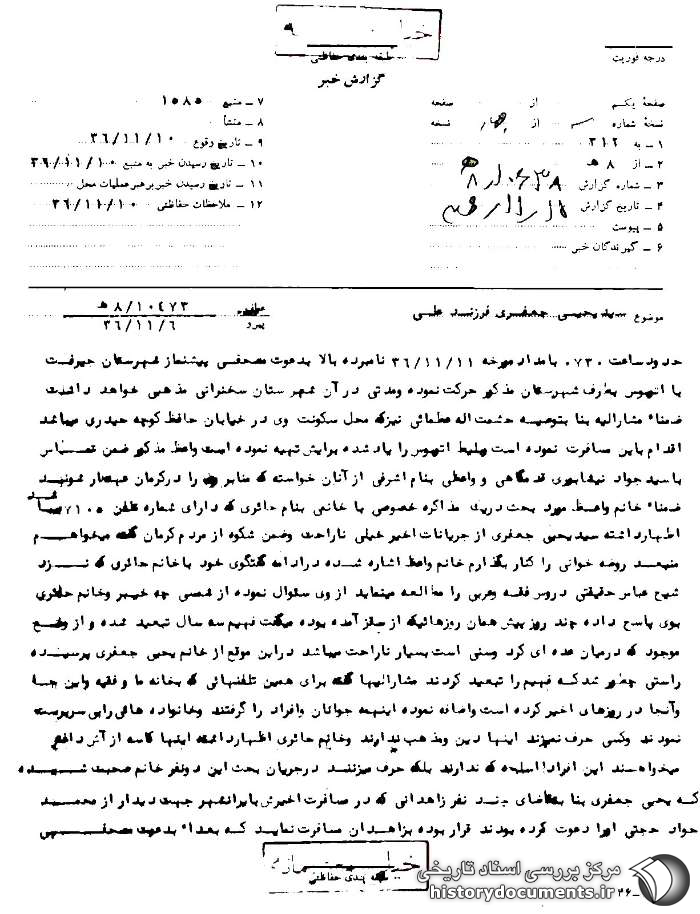 درجه فوریت
طبقه بندی حفاظتی
گزارش خبر
صفحهٔ یکم از صفحه
نسخهٔ شماره از چهار نسخه
۱ – به ۳۱۲
۲ – از ۸ هـ
۳ – شماره گزارش
۴ – تاریخ گزارش
۵ – پیوست
۶ – گیرندگان خبر
۷ – منبع ۱۵۸۵
۸ – منشأ
۹ – تاریخ وقوع ۳۶/۱۱/۱۰
۱۰ – تاریخ رسیدن خبر به منبع ۳۶/۱۱/۱۰
۱۱ – تاریخ رسیدن خبر برهبر عملیات محل
۱۲ – ملاحظات حفاظتی ۳۶/۱۱/۱۰
موضوع سید یحیی جعفری فرزند علی
۸/۱۰۴۷۳ هـ
پیرو ۳۶/۱۱/۶
حدود ساعت ۰۷۳۰ بامداد مورخه ۳۶/۱۱/۱۱ نامبرده بالا بدعوت مصحفی پیشنماز شهرستان جیرفت
با اتوبوس بطرف شهرستان مذکور حرکت نموده ومدتی در آن شهرستان سخنرانی مذهبی خواهد داشت
ضمنا" مشارالیه بنا بتوصیه حشمت اله طمائی نیزکه محل سکونت وی در خیابان حافظ کوچه حیدری میباشد
اقدام باین مسافرت نموده است وبلیط اتوبوس را یاد شده برایش تهیه نموده است واعظ مذکور ضمن تماس
با سید جواد نیشابوری قدمگاهی و واعظی بنام اشرفی از آنان خواسته که منابر وی را درکرمان عهدار شوند
ضمنا" خانم واعظ مورد بحث دریک مذاکره خصوصی با خانمی بنام حائری که دارای شماره تلفن ۷۱۰۵ میباشد
اظهارداشته سید یحیی جعفری از جریانات اخیر خیلی ناراحت وضمن شکوه از مردم کرمان گفته میخواهم
منبعد روضه خوانی را کنار بگذارم خانم واعظ اشاره شده درادامه گفتگوی خود باخانم حائری که نزد
شیخ عباس حقیقتی دروس فقه وعربی را مطالعه مینماید از وی سئوال نموده از شمسی چه خبر وخانم حائری
بوی پاسخ داده چند روز پیش همان روزهائیکه از سقز آمده بوده میگفت فهیم سه سال تبعید شده و از وضع
موجود که درمیان عده ای کرد وسنی است بسیار ناراحت میباشد دراین موقع از خانم یحیی جعفری پرسیده
راستی چطور شدکه فهیم را تبعید کردند مشارالیها گفته برای همین تلفنهائی که بخانه ما و فقیه واین جا
وآنجا در روزهای اخیر کرده است واضافه نموده اینهمه جوانان وافراد را گرفتند وخانواده هائی رابی سرپرست
نمودند وکسی حرف نمیزند اینها دین ومذهب ندارند وخانم حائری اظهارداشته اینها کاسه از آش داغتر
میخواهند این افراد اسلحه که ندارند بلکه حرف میزنند درجریان بحث این دونفر خانم صحبت شنیده
که یحیی جعفری بنا بتقاضای چند نفر زاهدانی که در مسافرت اخیرش بایرانشهر جهت دیدار از محمد
جواد حجتی اورا دعوت کرده بودند قرار بوده بزاهدان مسافرت نماید که بعدا" بدعوت مصحفی
طبقه بندی حفاظتی
مرکز بررسی اسناد تاریخی
historydocuments.ir